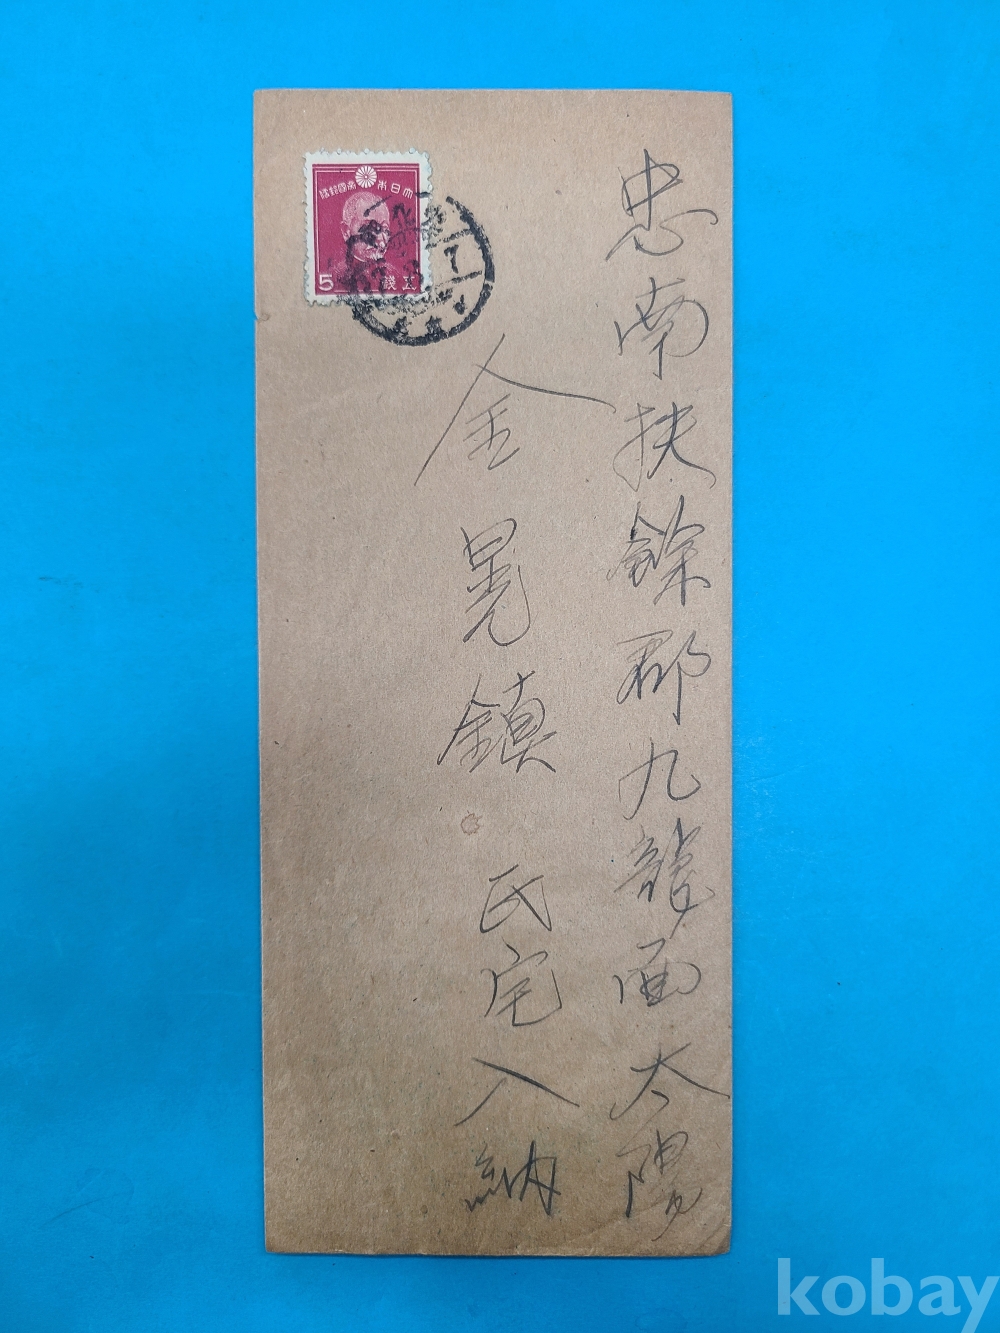 忠南扶餘郡九龍面太陽
金晃鎮氏宅入納
大日本帝國郵便
5 五錢
7
kobay